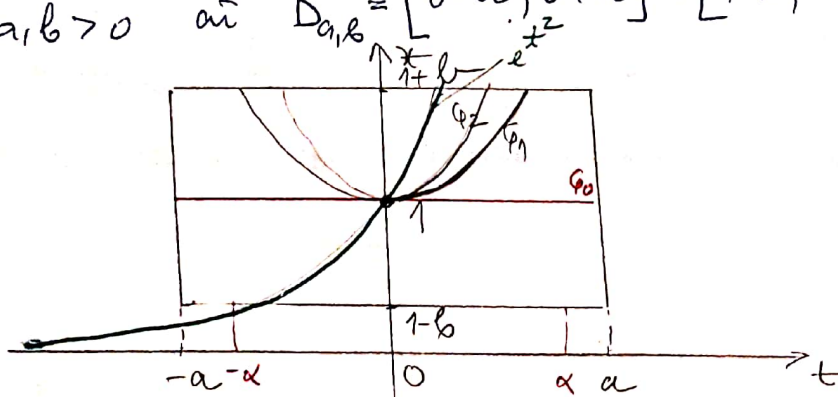 a,b > 0 aî D_{a,b} = [0-a, 0+a]
x
1+b
e^{t^2}
φ_2
φ_1
φ_0
1
1-b
-a -α 0 α a t